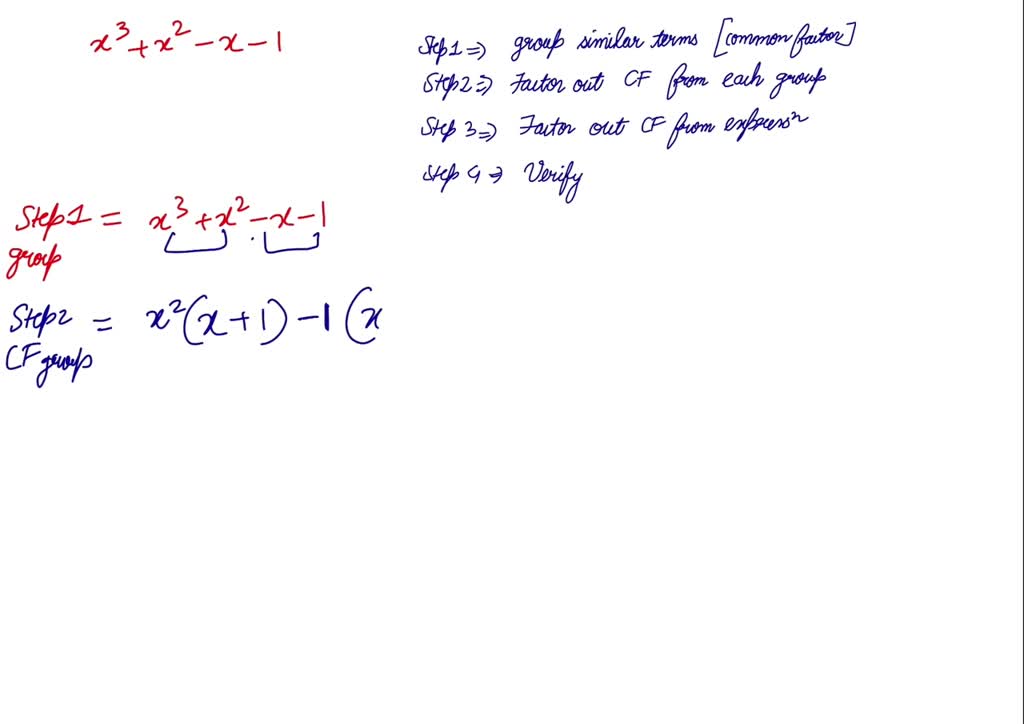 x³ + x² - x - 1
Step 1 ⇒ group similar terms [common factor]
Step 2 ⇒ Factor out CF from each group
Step 3 ⇒ Factor out CF from expressⁿ
Step 4 ⇒ Verify
Step 1 = x³ + x² - x - 1
group
Step 2 = x²(x + 1) - 1 (x
CF group